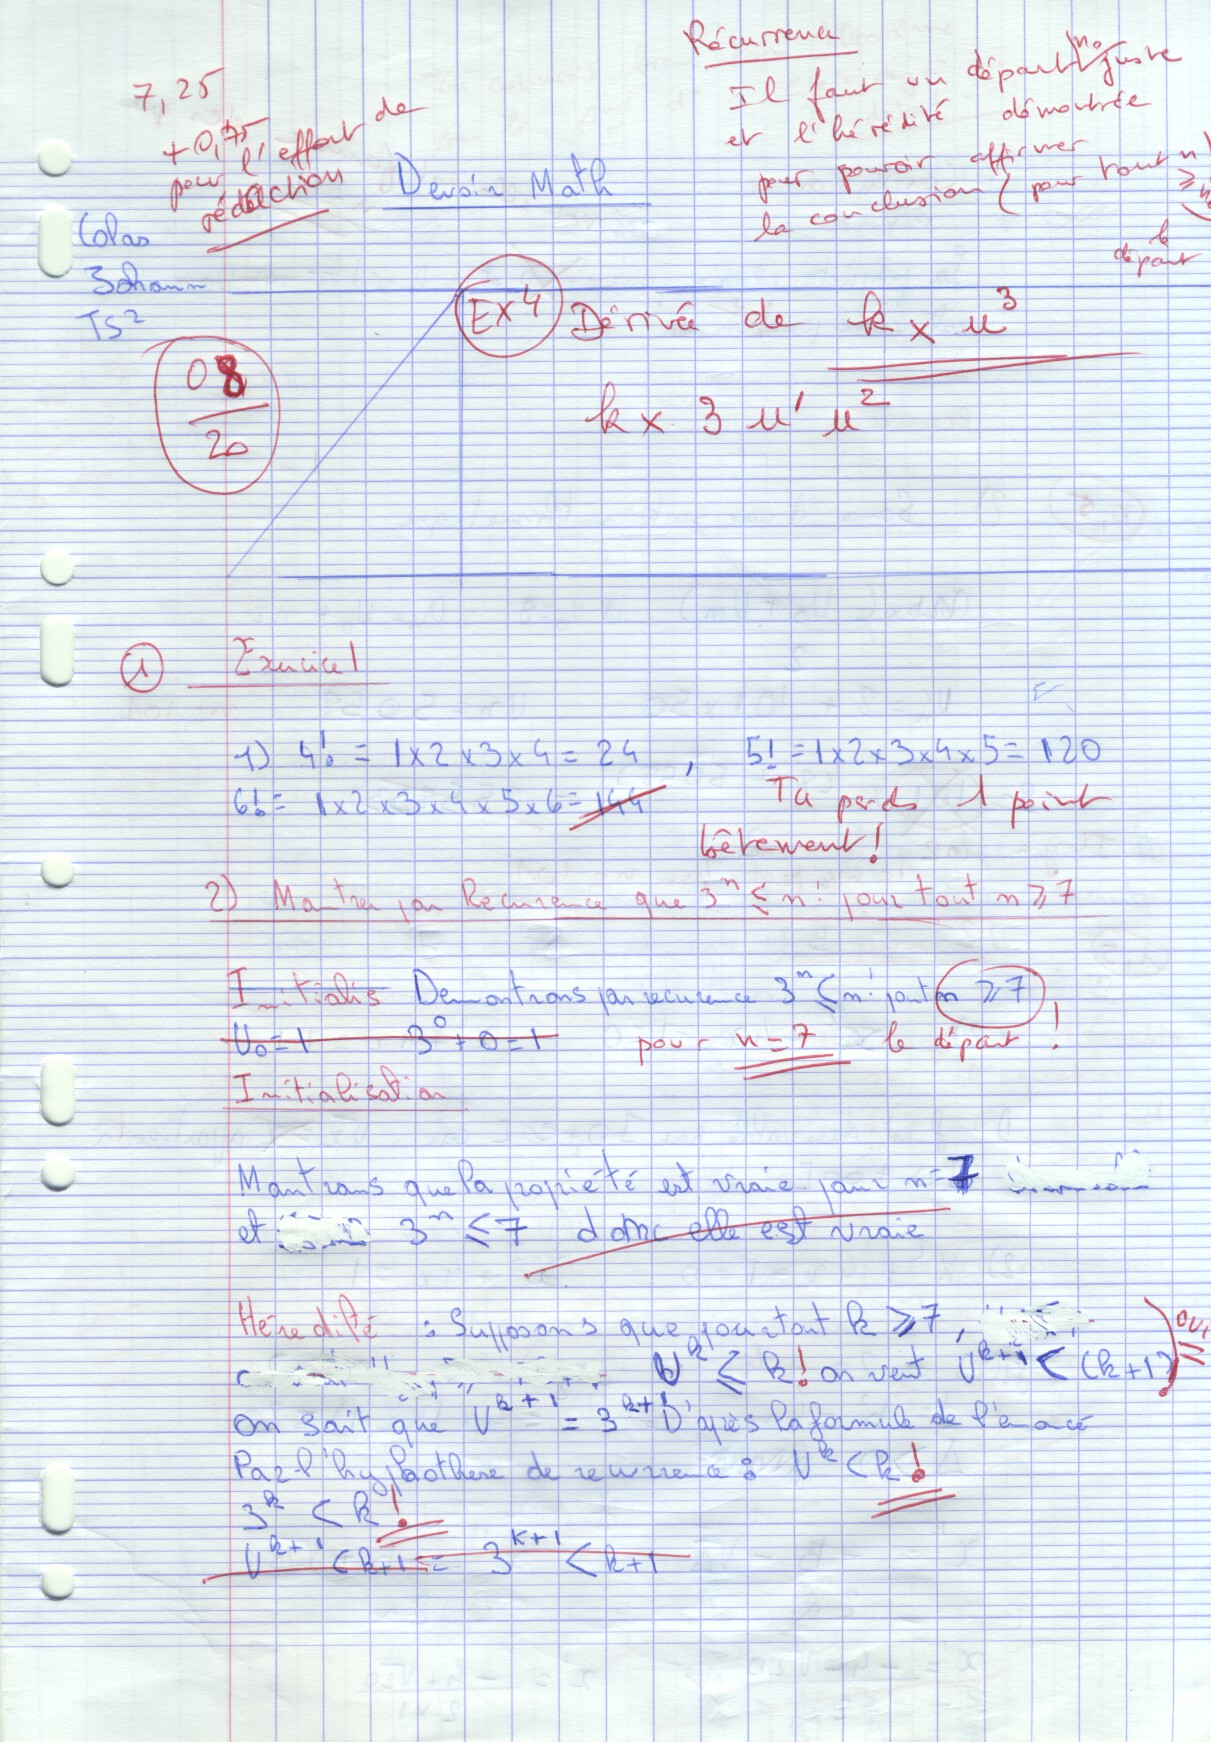 Récurrence
Il faut un départ n₀ juste
et l'hérédité démontrée
pour pouvoir affirmer
la conclusion (pour tout n
≥ n₀)
le
départ
7,25
+0,75
pour l'effort de
rédaction
Devoir Math
Colas
TS2
08
20
EX 4 Dérivée de k × u³
k × 3 u' u²
1 Exercice 1
1) 4! = 1×2×3×4 = 24 , 5! = 1×2×3×4×5 = 120
6! = 1×2×3×4×5×6 = 144 Tu perds 1 point
bêtement!
2) Montrer par Recurence que 3ⁿ ≤ n! pour tout n ≥ 7
Initialis Demontrons par recurence 3ⁿ ≤ n! pour n ≥ 7
U₀ = 1 3⁰ + 0 = 1 pour n = 7 le départ !
Initialisation
Montrons que la propriété est vraie pour n = 7
et 3ⁿ ≤ 7 donc elle est vraie
Hérédité : Supposons que pour tout k ≥ 7,
Uᵏ ≤ k! on veut Uᵏ⁺¹ < (k+1)! ou ≤
on sait que Uᵏ⁺¹ = 3ᵏ⁺¹ D'après la formule de l'énoncé
Par l'hypothese de recurrence : Uᵏ < k!
3ᵏ < k!
Uᵏ⁺¹ < k+1 = 3ᵏ⁺¹ < k+1